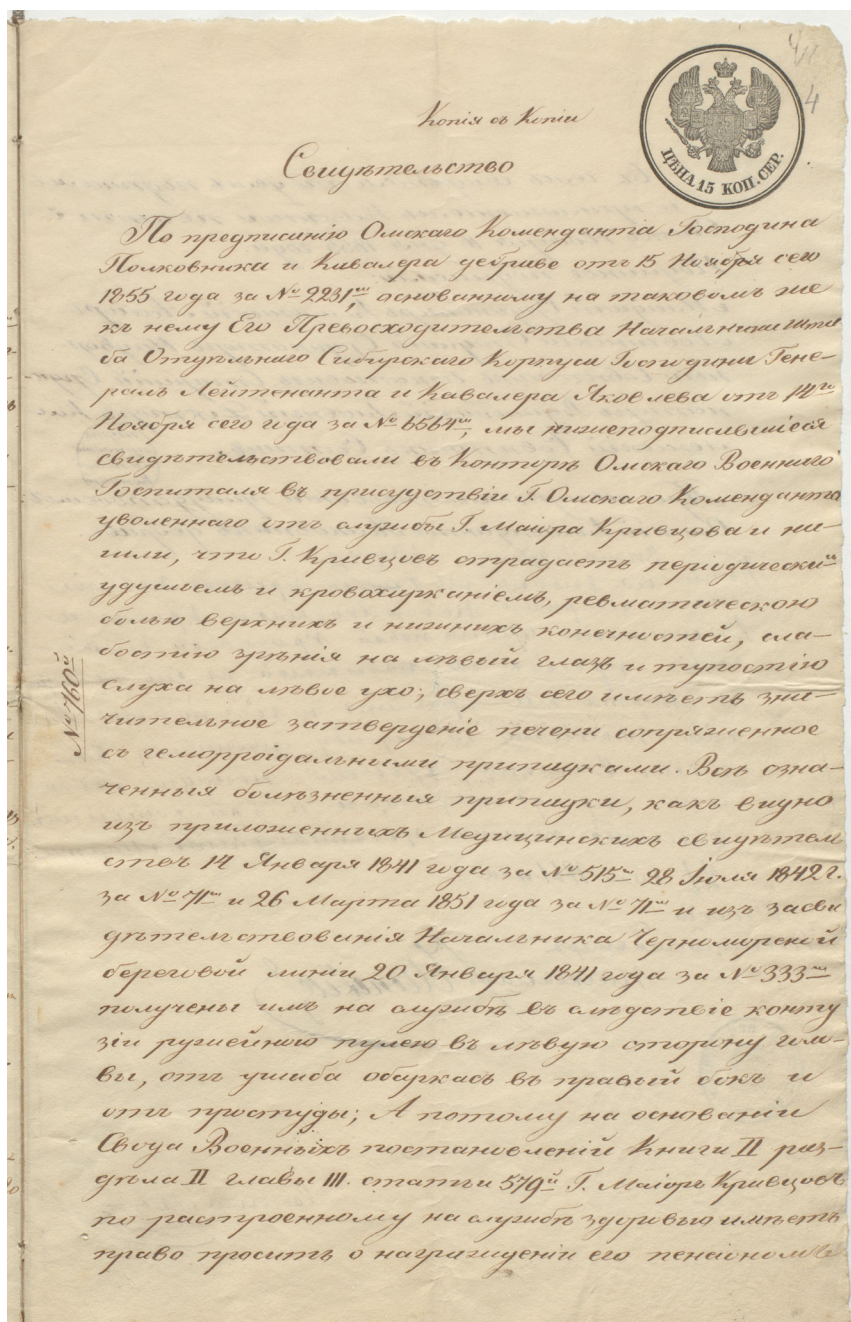 4
Копія съ Копіи
ЦѢНА 15 КОП. СЕР.
Свидѣтельство
По предписанію Омскаго Коменданта Господина
Полковника и Кавалера дебриве отъ 15 Ноября сего
1855 года за № 2231мъ, основанному на таковомъ же
къ нему Его Превосходительства Начальника Шта
ба Отдѣльнаго Сибирскаго Корпуса Господина Гене-
ралъ Лейтенанта и Кавалера Яковлева отъ 14го
Ноября сего года за № 6564мъ, мы нижеподписавшіеся
свидѣтельствовали въ Конторѣ Омскаго Военнаго
Госпиталя въ присудствіи Г. Омскаго Коменданта
уволеннаго отъ службы Г. Маіора Кривцова и на-
шли, что Г. Кривцовъ страдаетъ періодически
удушьемъ и кровохарканіемъ, ревматическою
болью верхнихъ и нижнихъ конечностей, сла-
бостію зрѣнія на лѣвый глазъ и тупостію
слуха на лѣвое ухо; сверхъ сего имѣетъ зна-
чительное затвердѣніе печени сопряженное
съ геморроідальными припадками. Всѣ озна-
ченныя болѣзненныя припадки, какъ видно
изъ приложенныхъ Медицинскихъ свидѣтель
ствъ 14 Января 1841 года за № 515мъ 28 Іюля 1842 г.
за № 71мъ и 26 Марта 1851 года за № 71мъ и изъ засви
дѣтельствованія Начальника Черноморской
береговой линіи 20 Января 1841 года за № 333мъ
получены имъ на службѣ въ слѣдствіе конту
зіи ружейною пулею въ лѣвую сторону голо-
вы, отъ ушиба обаркасъ въ правый бокъ и
отъ простуды; А потому на основаніи
Свода Военныхъ постановленій Книги II раз-
дѣла II главы III. статьи 579й Г. Маіоръ Кривцовъ
по растроенному на службѣ здоровью имѣетъ
право просить о награжденіи его пенсіономъ
№ 760й